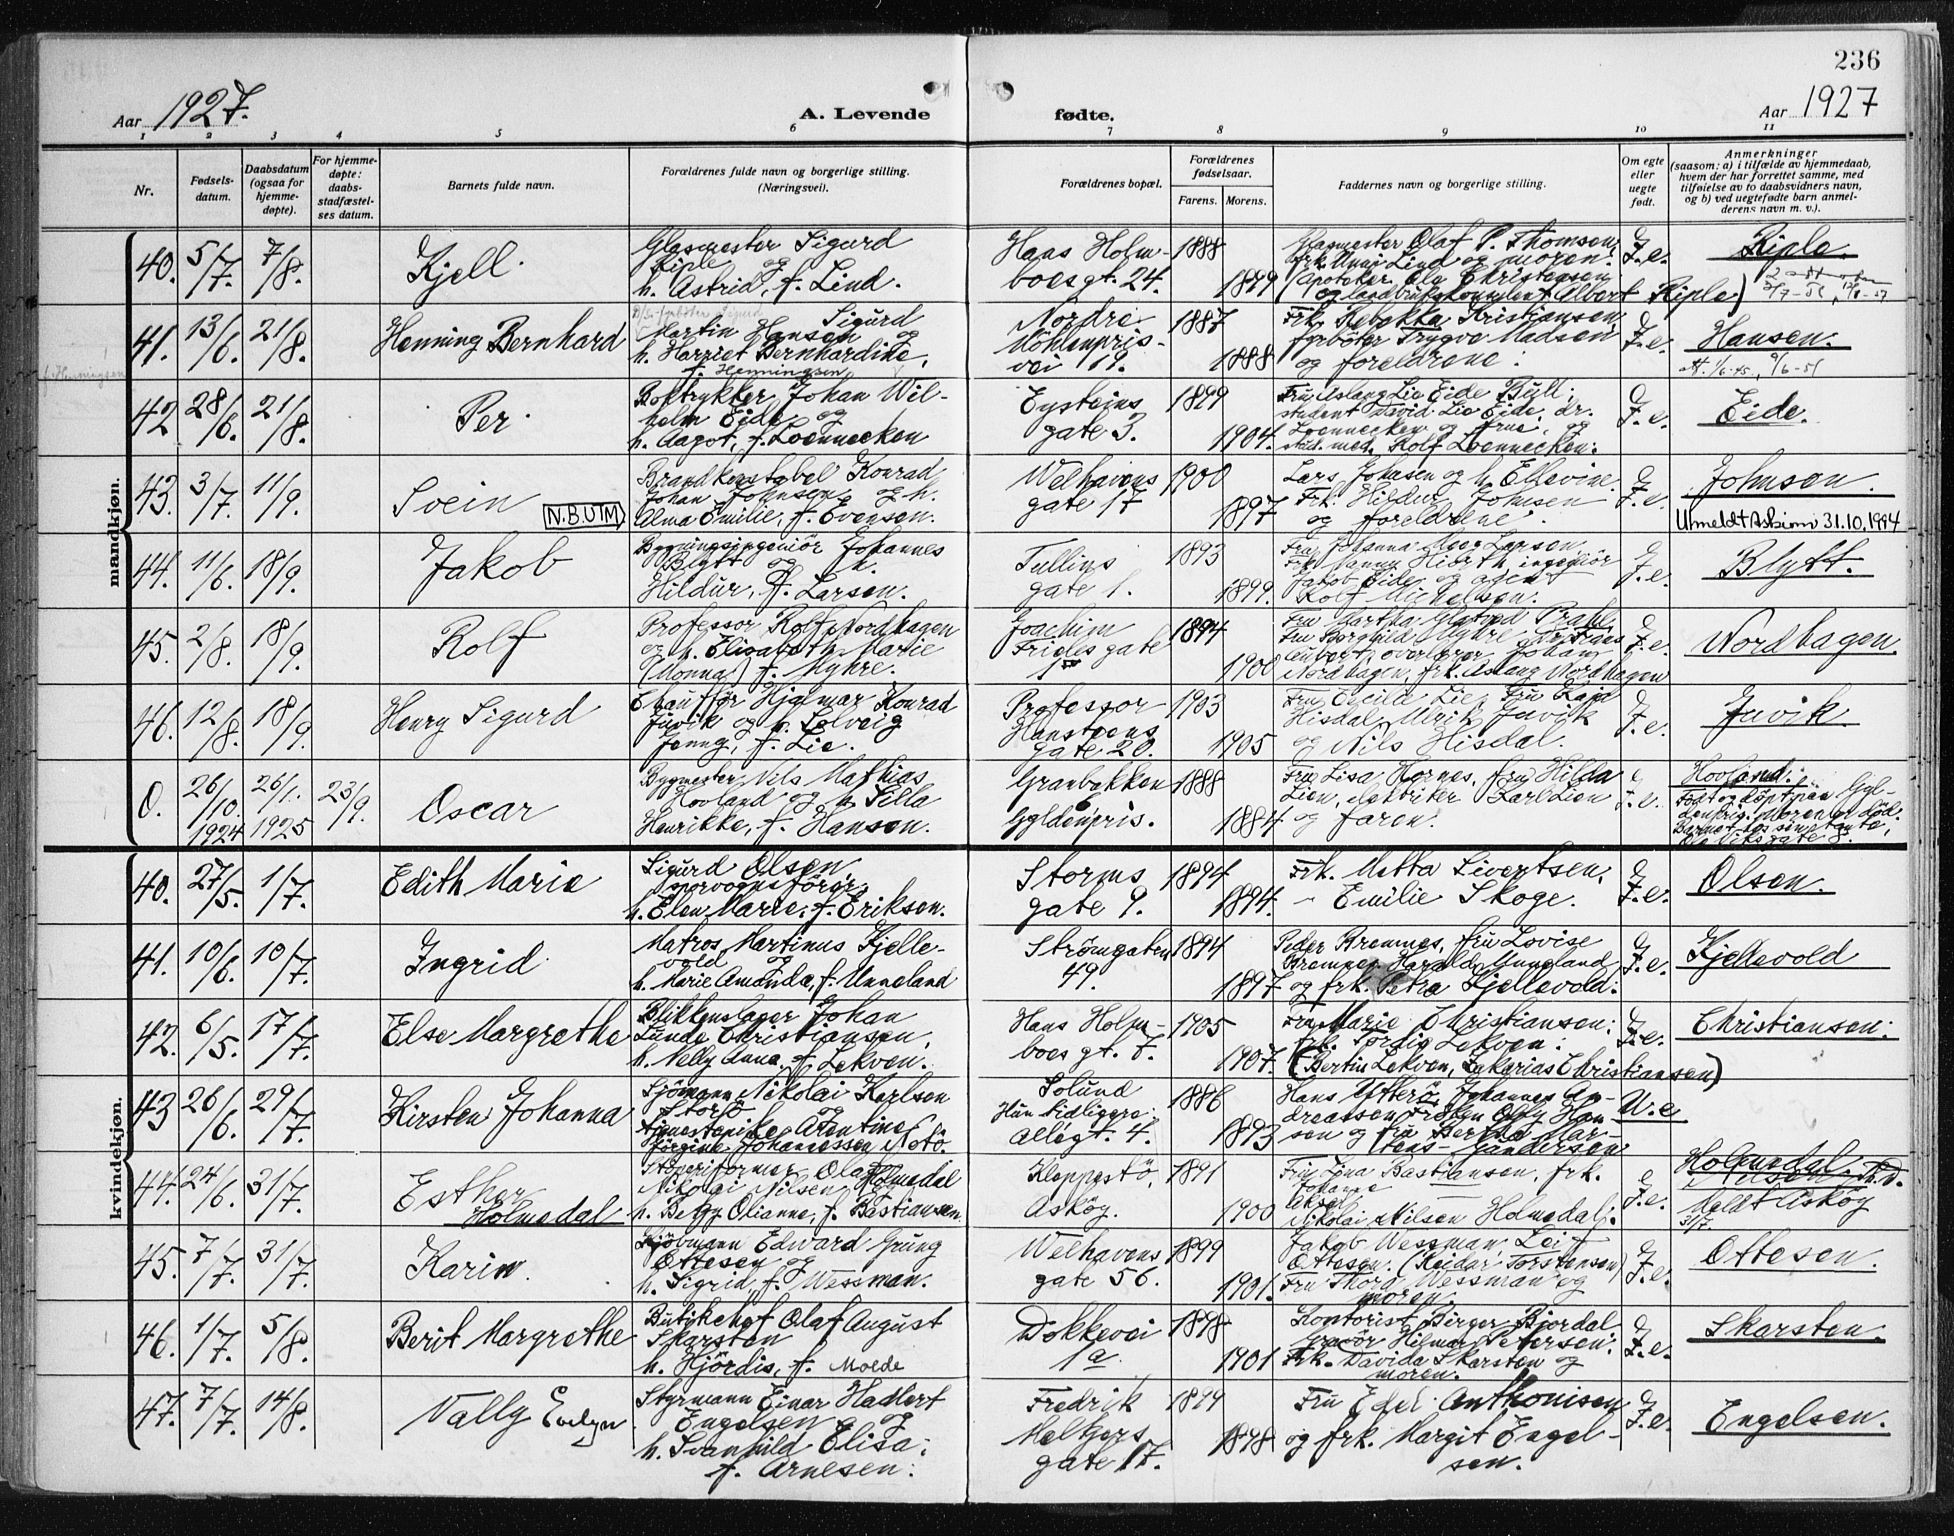 236
Aar 1927.
A. Levende
fødte.
Aar 1927
1 2 3 4 5 6 7 8 9 10 11
Nr.
Fødsels-
datum.
Daabsdatum
(ogsaa for
hjemme-
døpte).
For hjemme-
døpte:
daabs-
stadfæstel-
ses datum.
Barnets fulde navn.
Forældrenes fulde navn og borgerlige stilling.
(Næringsvei).
Forældrenes bopæl.
Forældrenes
fødselsaar.
Farens. Morens.
Faddernes navn og borgerlige stilling.
Om egte
eller
uegte
født.
Anmerkninger
(saasom: a) i tilfælde av hjemmedaab,
hvem der har forrettet samme, med
tilføielse av to daabsvidners navn,
og b) ved uegtefødte barn anmel-
derens navn m. v.).
mandkjøn.
40. 5/7. 7/8.
Kjell.
Glasmester Sigurd
Riple og
h. Astrid, f. Lind.
Hans Holm-
boesgt. 24.
1888
1899
Glasmester Olaf P. Thomsen,
frk. Lind og moren.
(Apoteker Ole Christensen
og landbrukskonsulent Albert Riple)
F.e.
Riple.
41. 13/6. 21/8.
Henning Bernhard
Sigurd
Martin Hansen og
h. Harriet Bernhardine,
f. Henningsen
Nordre
Möhlenpris-
vei 19.
1887
1888
Frk. Rebekka Kristiansen,
fyrbøter Trygve Madsen
og foreldrene.
F.e.
Hansen.
42. 28/6. 21/8.
Per.
Boktrykker Johan Wil-
helm Eide og
h. Aagot, f. Loennecken
Eysteins
gate 3.
1899
1904.
Fru Aslaug Lie Eide Bull,
student David Lie Eide, dr.
Loennecken og frue, og
stud. med. Rolf Loennecken.
F.e.
Eide.
43. 3/7. 11/9.
Svein
N.B. UTM
Brandkonstabel Konrad
Johan Johnsen og h.
Alma Emilie, f. Evensen.
Welhavens
gate 17
1900
1897
Lars Johnsen og h. Ellevine
Frk. Hildur Johnsen
og foreldrene.
F.e.
Johnsen.
Utmeldt Askim 31.10.1994
44. 11/6. 18/9.
Jakob
Bygningsingeniör Johannes
Blytt og h.
Hildur, f. Larsen.
Tullins
gate 1.
1893
1899.
Fru Johanna Meer Larsen
Hiorth, ingeniör
Jacob Eide og agent
Rolf Michelsen.
F.e.
Blytt.
45. 2/8. 18/9.
Rolf
Professor Rolf Nordhagen
og h. Elisabeth Marie
(Monna) f. Myhre.
Joachim
Frieles gate
1894
1900
Fru Martha Prahl
Fru Borghild Myhre,
Aubert, overlærer Johan
Nordhagen, frk. Aslaug Nordhagen
F.e.
Nordhagen.
46. 12/8. 18/9.
Henry Sigurd
Chauffør Hjalmar Konrad
Juvik og h. Solveig
Jenny, f. Lie.
Professor
Hansteens
gate 20.
1903
1905
Fru Cecilie Lie, Fru Kaja
Hisdal, Ulrik Juvik
og Nils Hisdal.
F.e.
Juvik.
0. 26/10. 1924 26/1. 1925 23/9.
Oscar
Bygmester Nels Mathias
Hovland og h. Silla
Henrikke, f. Hansen.
Granbakken
Gyldenpris.
1888
1884
Fru Lisa Hornes, fru Hilda
Lien, elektriker Karl Lien
og faren.
F.e.
Hovland.
Født og döpt paa Gyl-
denpris. Moren død.
kvindekjøn.
40. 27/5. 1/7.
Edith Marie
Sigurd Olsen,
sporvognsförer,
h. Elen Marie, f. Eriksen.
Storms
gate 9.
1894
1894.
Frk. Metta Sivertsen,
- Emilie Skoge.
F.e.
Olsen.
41. 10/6. 10/7.
Ingrid
Matros Martinus Kjelle-
vold og
h. Marie Amanda, f. Unneland
Strömgaten
49.
1894
1897.
Peder Bremnes, fru Lovise
Bremnes, Harald Unneland
og frk. Petra Kjellevold.
F.e.
Kjellevold
42. 6/5. 17/7.
Else Margrethe
Blikkenslager Johan
Lunde Christiansen,
h. Nelly Anna, f. Lekven.
Hans Holm-
boes gt. 7.
1905
1907.
Fru Marie Christiansen.
frk. Tordis Lekven.
(Bertin Lekven, Zakarias Christiansen)
F.e.
Christiansen.
43 26/6. 29/7.
Kirsten Johanna
Sjömann Nikolai Karlsen
Storö og
tjenestepike Argentine
Jörgine Johannessen Notö.
Solund
Hun tidligere
Allégt. 4.
1886
1893
Hans Ytterö, Johannes An-
dreassen, Frøken Olly Han-
sen og fru Bertha Mar-
tens- Gundersen.
U.e.
44. 24/6. 31/7.
Esther
Holmedal
Støperiformer Olaf Holmedal
Nikolai Nilsen og
h. Betzy Olianne, f. Bastiansen.
Kleppestö,
Asköy.
1891
1900
Fru Lena Bastiansen, frk.
Johanne
Aksel
Nikolai Nilsen Holmedal.
F.e.
Holmedal
Nilsen
Meldt Asköy
31/7
45. 7/7. 31/7.
Karin.
Kjöbmann Edward Grung
Ottesen og
h. Sigrid, f. Wessman.
Welhavens
gate 56.
1899
1901.
Jakob Wessman Leif
Ottesen. (Reidar Torstensen)
Fru Thora Wessman og
moren.
F.e.
Ottesen.
46. 1/7. 5/8.
Berit Margrethe
Butikchef Olaf August
Skarsten
h. Hjördis, f. Molde
Dokkevei
1a.
1898
1901
Kontorist Birger Bjordal
gravör Hilmar Petersen.
Frk. Davida Skarsten og
moren.
F.e.
Skarsten.
47. 7/7. 14/8.
Vally Evelyn
Styrmann Einar Hadlert
Engelsen og
h. Svanhild Elisa.
f. Arnesen.
Fredrik
Meltzers
gate 17.
1899
1898
Fru Edel Anthonisen
og frk. Margit Engel-
sen.
F.e.
Engelsen.